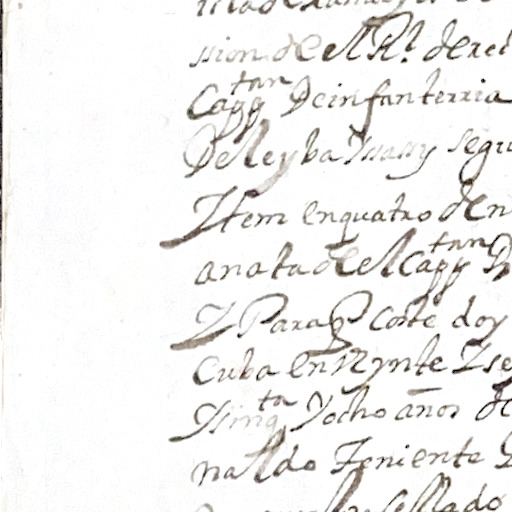 ssion de el Rl. derec
Capptan De infanterria
De leyba Ysassy segu
Ytem en quatro de n
anata de el Capptan D
Y Para q Coste doy
Cuba en Veynte Y se
Y sinqta Y ocho años de
naldo Teniente
sellado